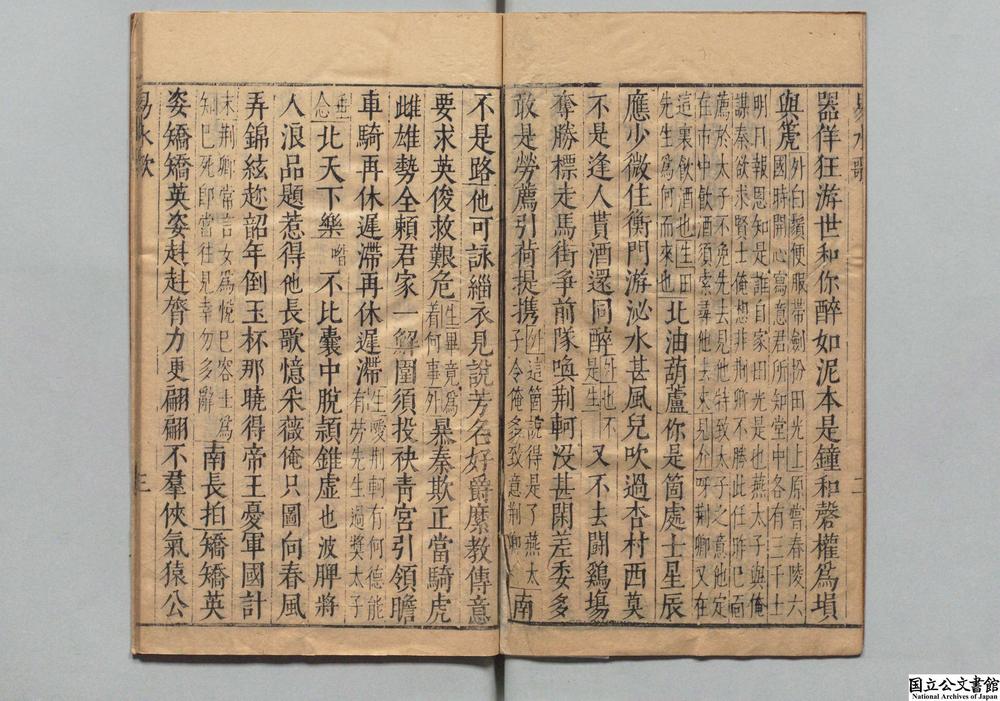 易水歌
二
器佯狂游世和你醉如泥本是鐘和磬權爲塤
與箎外白鬚便服帶劍扮田光上原嘗春陵六
國時開心寫意君所知堂中各有三千士
明日報恩知是誰自家田光是也燕太子與俺
謀秦欲求賢士俺想非荆卿不勝此任昨已面
薦於太子不免先去見他特致太子之意他定
在市中飲酒須索尋他去來見介呀荆卿又在
這裏飲酒也生田
先生爲何而來也北油葫蘆你是箇處士星辰
應少微住衡門游泌水甚風兒吹過杏村西莫
不是逢人貰酒還同醉外也不是生又不去鬪鷄塲
奪勝標走馬街爭前隊喚荆軻没甚閑差委多
敢是勞薦引荷提携外這箇說得是了燕太子令俺多致意荆卿南
不是路他可詠緇衣見說芳名好爵縻教傳意
要求英俊救艱危生畢竟爲着何事外暴秦欺正當騎虎
雌雄勢全賴君家一解圍須投袂青宮引領瞻
車騎再休遲滯再休遲滯生噯荆軻有何德能有勞先生過奬太子
垂念北天下樂不比囊中脫頴錐虛也波脾將
人浪品題惹得他長歌憶采薇俺只圖向春風
弄錦絃趂韶年倒玉杯那曉得帝王憂軍國計
末荆卿常言女爲悅己容士爲
知己死卽當往見幸勿多辭南長拍矯矯英
姿矯矯英姿赳赳膂力更翩翩不羣俠氣猿公
易水歌
三
国立公文書館
National Archives of Japan